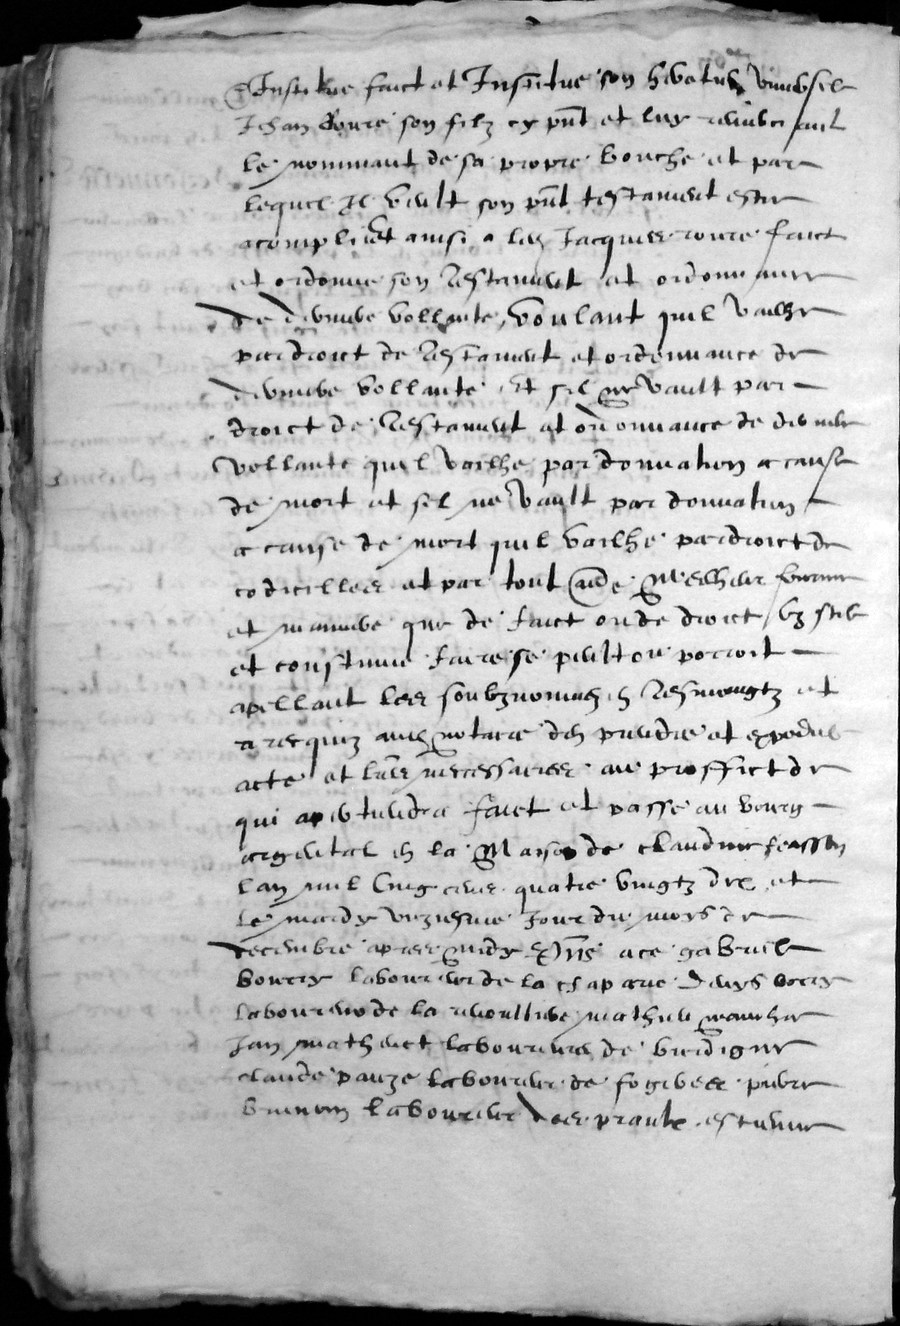 Institue faict et Institue son heretier universel
Jehan Roure son filz cy pnt et luy
le nommant de sa propre bouche et par
lequel Il veult son pnt testament estre
acomply et ainsi a led Jacques roure faict
et ordonne son testament et ordonnance
de derniere vollante voulant quil vailhe
par droict de testament et ordonnance de
derniere vollante Et sil ne vault par
droict de testament et ordonnance de derniere
vollante quil vailhe par donnation a cause
de mort et sil ne vault par donnation
a cause de mort quil vailhe par droict de
codicilles et par tout aultre meilheur forme
et maniere que de faict ou de droict uz stil
et constume faire se peult ou porroit
apellant les soubznommes en tesmoingtz et
a requiz a moy notaire den prendre et expedie
acte et lres necessaires au proffict de
qui apertiendra faict et passe au bourg
argental en la Maison de claude feasson
lan mil cinq cens quatre vingtz dix et
le mardy unziesme Jour du moys de
decembre apres midy Pns a ce gabriel
bourry laboureur de la chaparie Denys borry
laboureur de la rivoultiere mathieu
Jan mathevet laboureurs de burdigne
claude pauze laboureur de pierre
brunon laboureur des praulx estienne